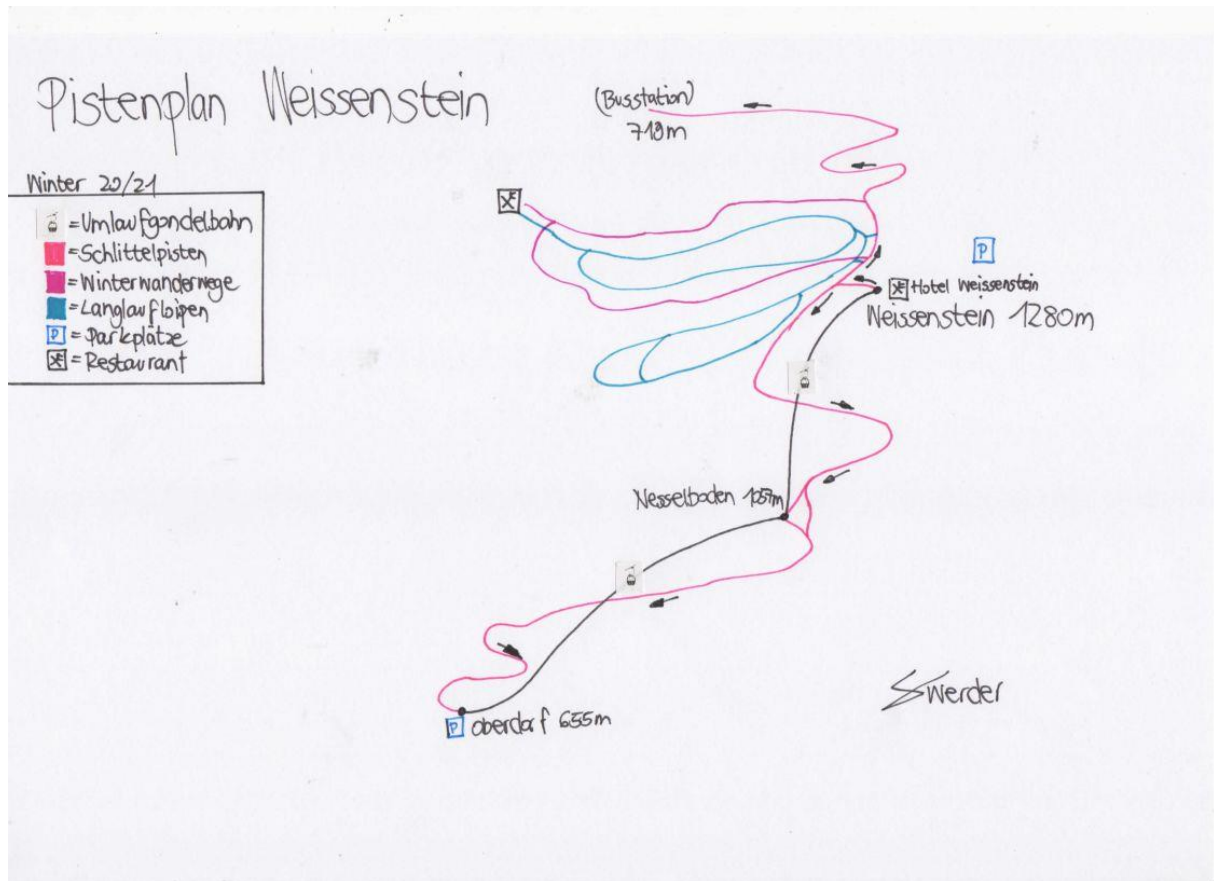 Pistenplan Weissenstein
(Busstation)
719m
Winter 20/21
= Umlaufgondelbahn
= Schlittelpisten
= Winterwanderwege
= Langlaufloipen
P = Parkplätze
= Restaurant
P
Hotel Weissenstein
Weissenstein 1280m
Nesselboden 1057m
Werder
P Oberdorf 655m